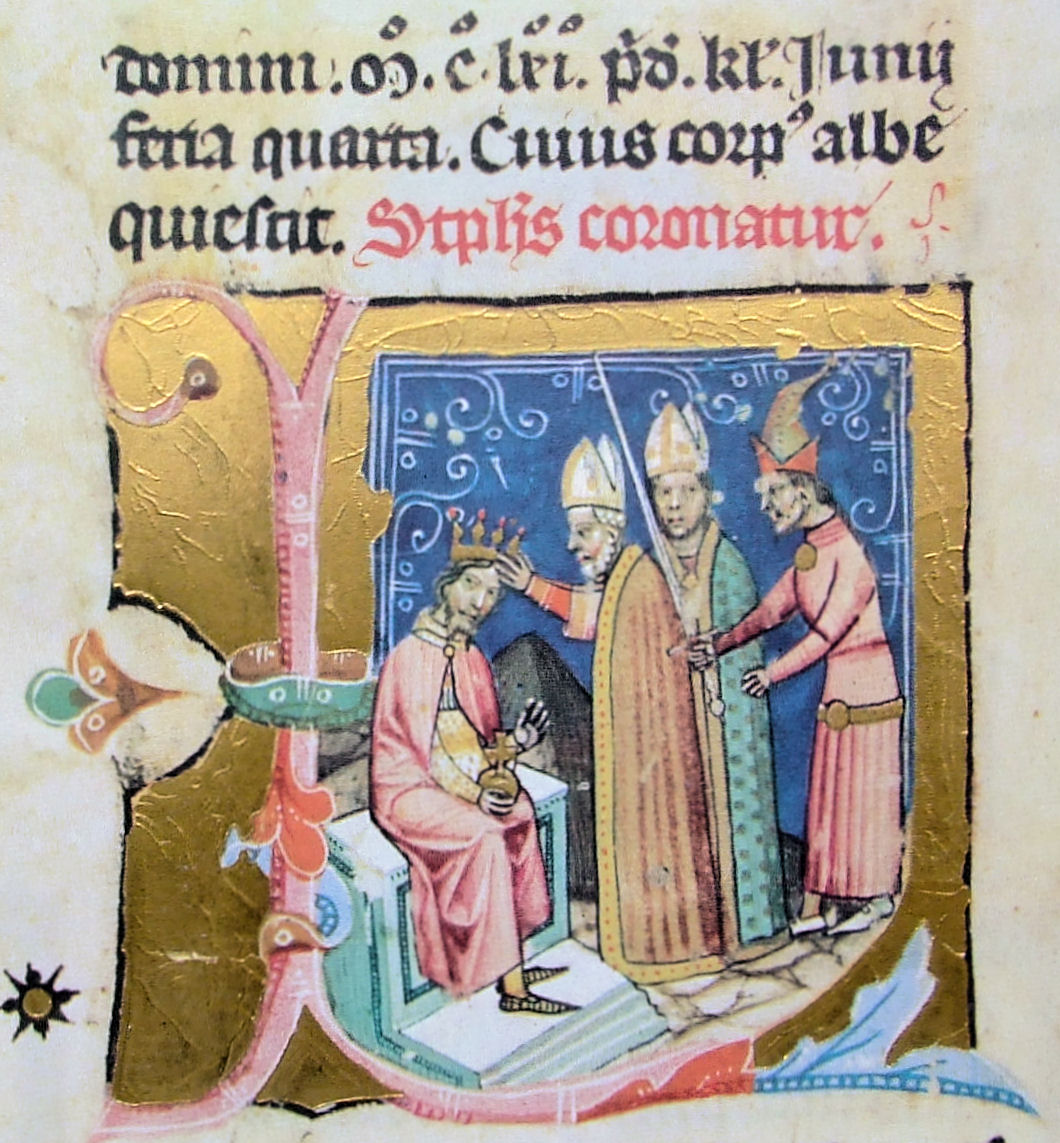 domini. M. C. lxi. pd. kl. Junij
feria quarta. Cuius corp' albe
quiescit. Stephs coronatur.